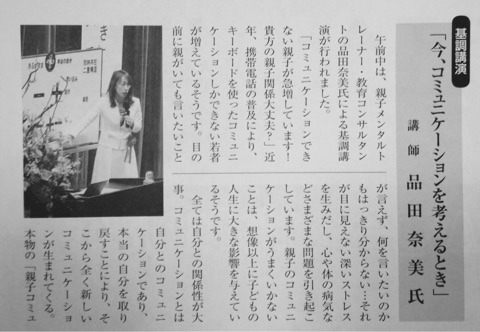 基調講演
「今、コミュニケーションを考えるとき」
講師 品田奈美氏
午前中は、親子メンタルト
レーナー・教育コンサルタン
トの品田奈美氏による基調講
演が行われました。
「コミュニケーションでき
ない親子が急増しています!
貴方の親子関係大丈夫?」近
年、携帯電話の普及により、
キーボードを使ったコミュニ
ケーションしかできない若者
が増えているそうです。目の
前に親がいても言いたいこと
が言えず、何を言いたいのか
もはっきり分からない…それ
が目に見えない深いストレス
を生みだし、心や体の病気な
どさまざまな問題を引き起こ
しています。親子のコミュニ
ケーションがうまくいかない
ことは、想像以上に子どもの
人生に大きな影響を与えてい
るそうです。
全ては自分との関係性が大
事。コミュニケーションとは
自分とのコミュニ
ケーションであり、
本当の自分を取り
戻すことにより、そ
こから全く新しい
コミュニケーショ
ンが生まれてくる。
本物の「親子コミュ